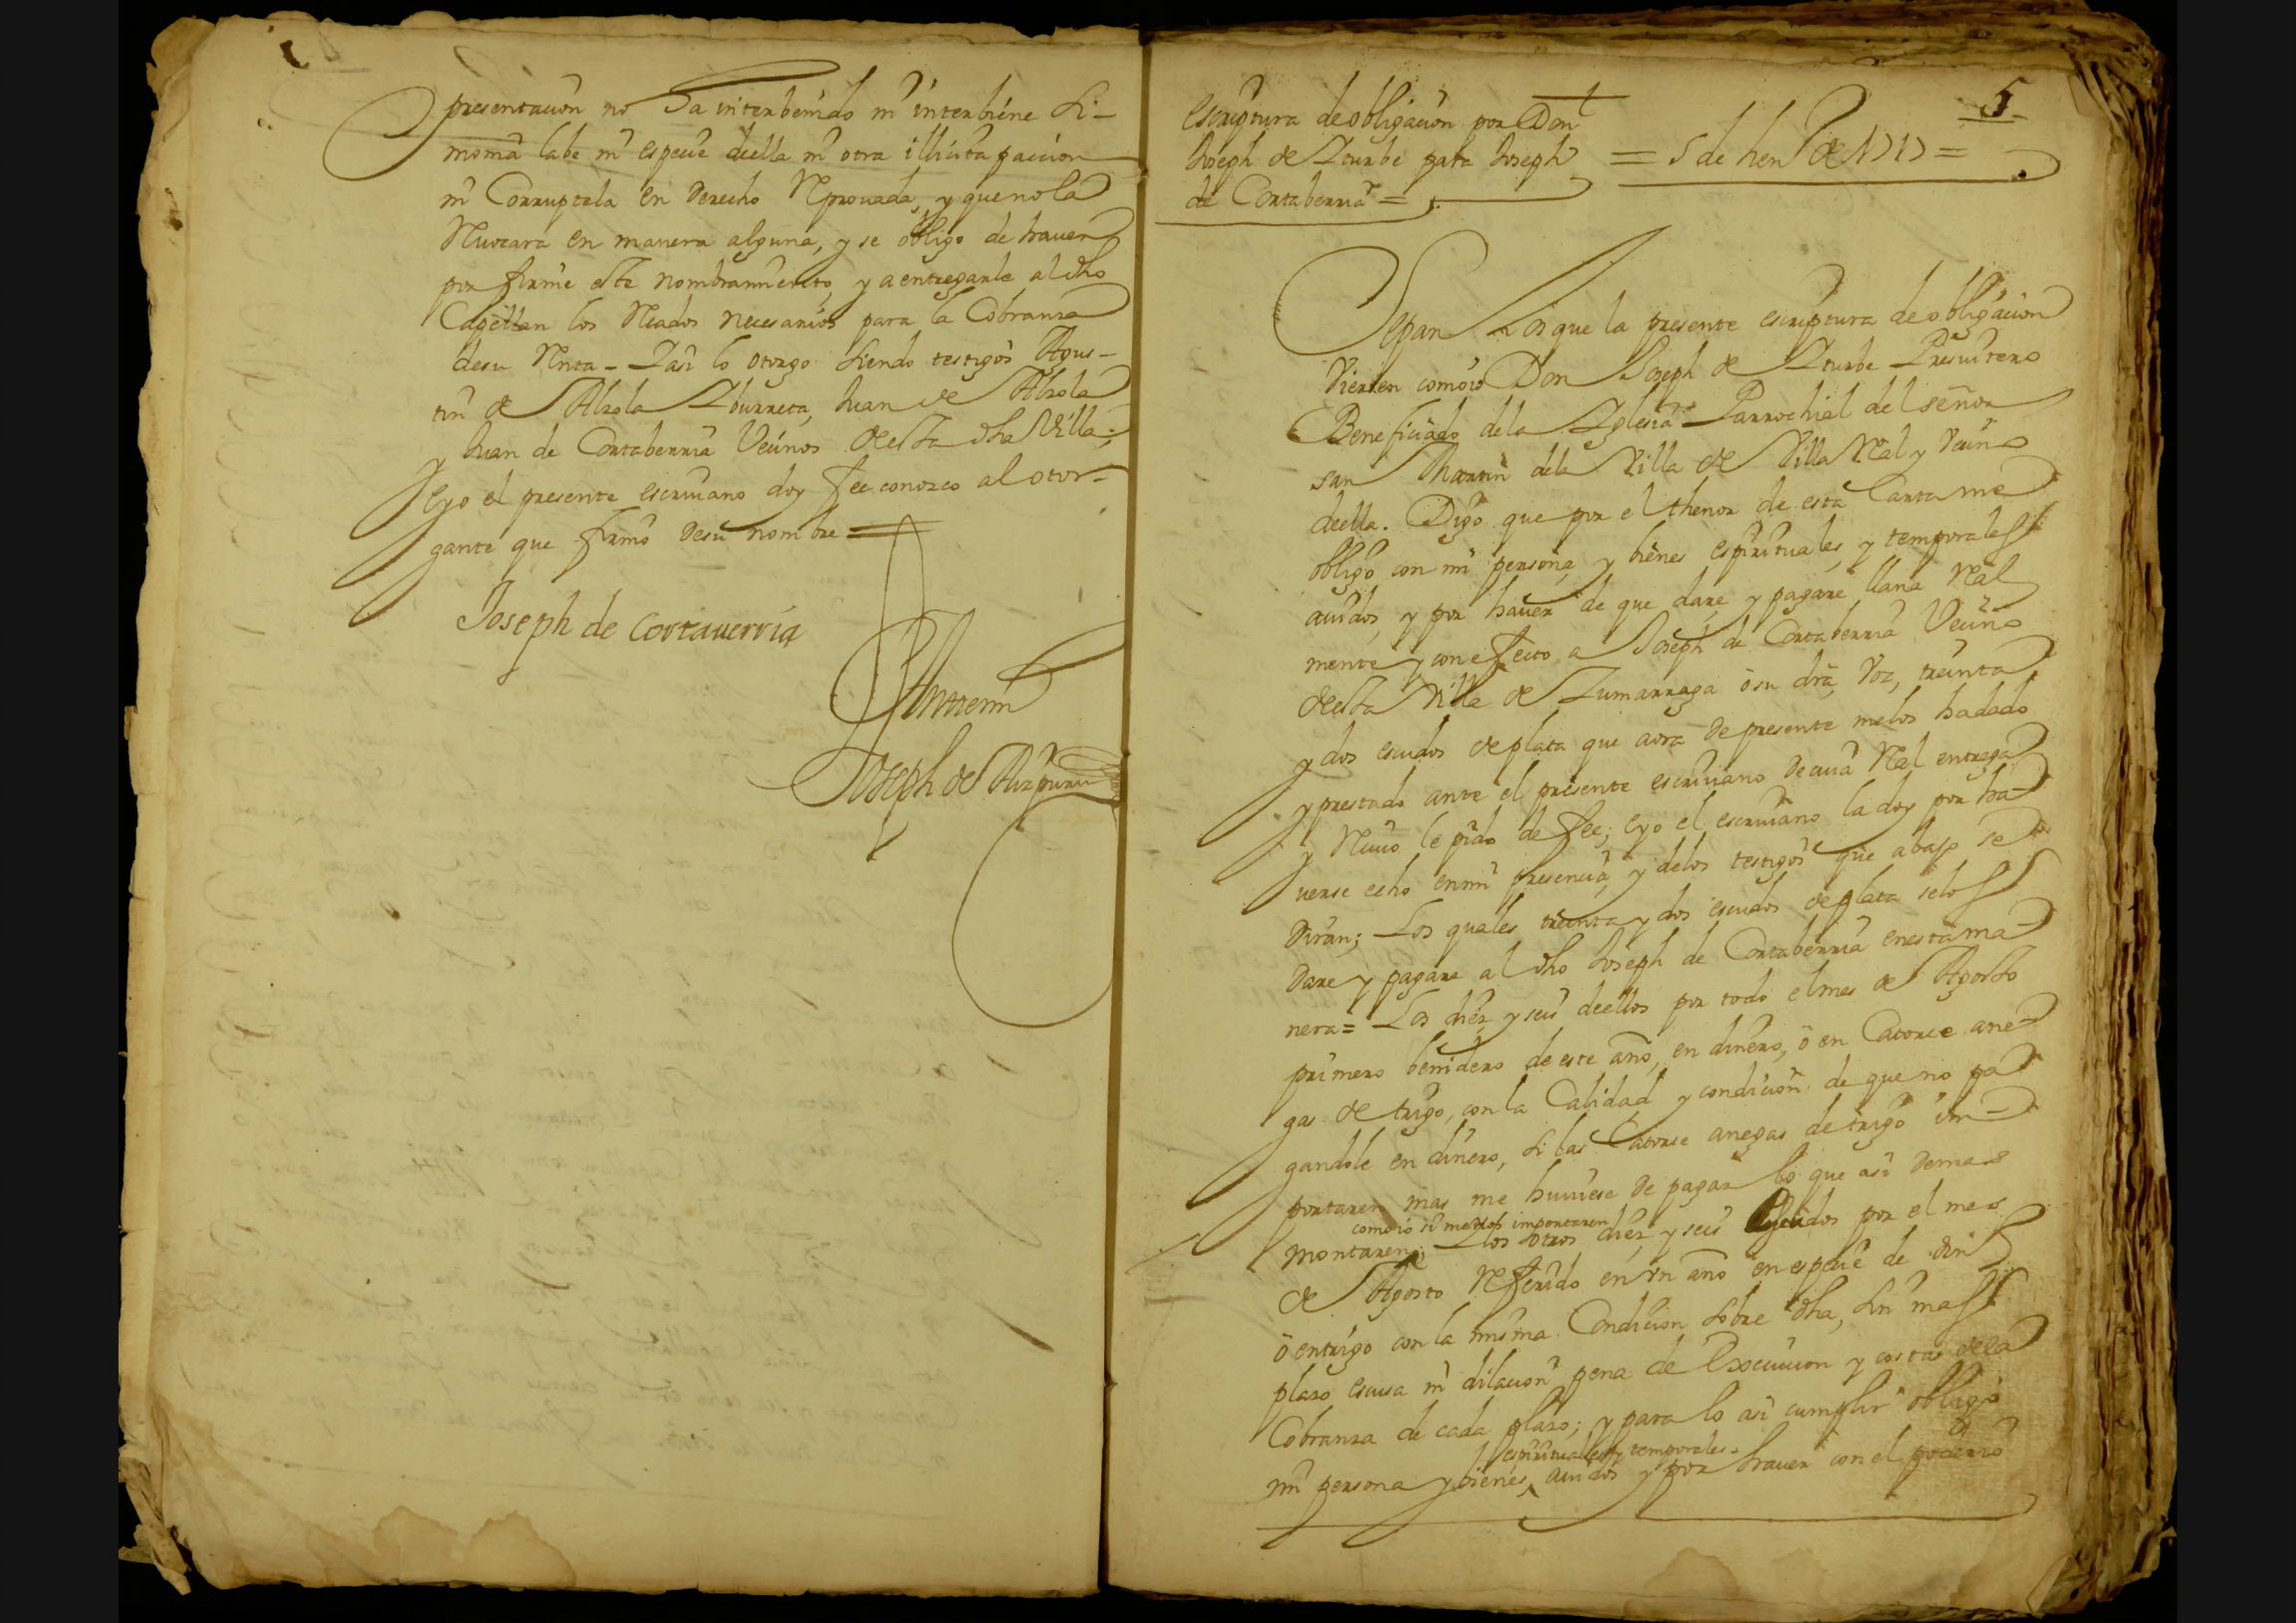 presentacion no ha interbenido ni interbiene si-
monia labe ni especie de ella ni otra illicita paccion
ni Corruptela en derecho Reprouada, y que no la
Reuocara en manera alguna, y se obligo de hauer
por firme este nombramiento, y a entregarle al dho
Capellan los Recados necesarios para la Cobranza
de su Renta - Y asi lo otorgo siendo testigos Agus-
tin de Alzola Yburreta, Juan de Alzola
y Juan de Cortaberria Vecinos de esta dha Villa;
E yo el presente escriuano doy fee conozco al otor-
gante que firmo de su nombre =
Joseph de Cortauerria
Ante mi
Joseph de Aizpuru
5
Escriptura de obligacion por Don
Joseph de Yturbe para Joseph
de Cortaberria =
= 5 de hen.º de 1717 =
Sepan los que la presente escriptura de obligacion
Vieren como io Don Joseph de Yturbe Presuitero
Beneficiado de la Yglesia Parrochial del señor
san Martin de la Villa de Villa Real y Vecino
de ella. Digo que por el thenor de esta Carta me
obligo con mi persona, y bienes espirituales, y temporales
auidos, y por hauer de que dare y pagare llana Real
mente y con efecto a Joseph de Cortaberria Vecino
de esta Villa de Zumarraga o su dra, Voz, treinta
y dos escudos de plata que aora de presente me los ha dado
y prestado ante el presente escriuano de cuia Real entrega
y Reciuo le pido de fee; E yo el escriuano la doy por ha-
uerse echo en mi presencia, y de los testigos que abajo se
diran; Los quales treinta y dos escudos de plata se los
dare y pagare al dho Joseph de Cortaberria en esta ma-
nera = Los diez y seis de ellos por todo el mes de Agosto
primero benidero de este año, en dinero, o en Catorce ane-
gas de trigo, con la Calidad y condicion de que no pa-
gandole en dinero, si las Catorce anegas de trigo im-
portaren mas me huuiese de pagar lo que asi demas
como io si menos importaren
montaren; Y los otros diez y seis escudos por el mes
de Agosto Referido en Vn año en especie de din.º
o en trigo con la misma Condicion sobre dha, sin mas
plazo escusa ni dilacion pena de Execucion y costas de la
Cobranza de cada plazo; y para lo asi cumplir obligo
espirituales y temporales
mi persona y bienes, auidos y por hauer con el poderio